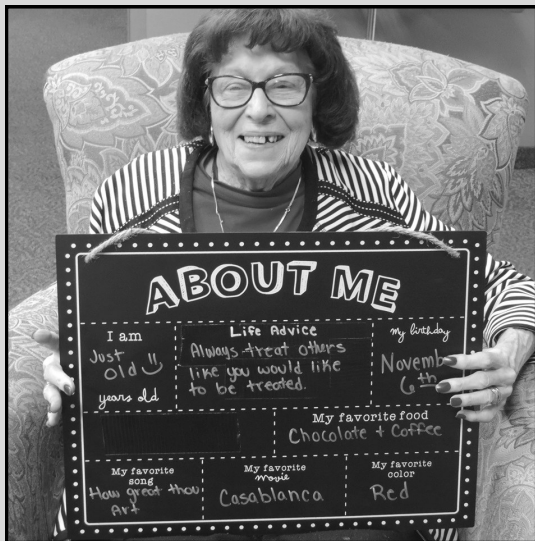 ABOUT ME
I am
Just
old
years old
Life Advice
Always treat others
like you would like
to be treated.
my birthday
Novemb
6th
My favorite food
Chocolate + Coffee
My favorite
song
How great thou
Art
My favorite
movie
Casablanca
My favorite
color
Red